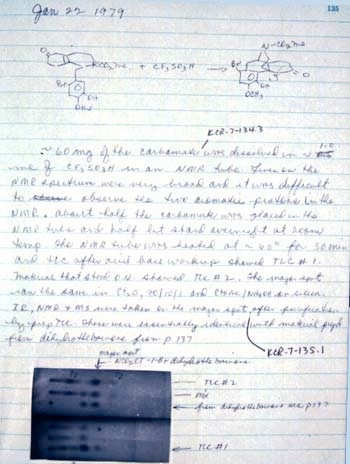 Jan 22 1979
135
NCO₂Me + CF₃SO₃H
N-CO₂Me
Br
Br
O
OH
OH
OMe
OCH₃
KCR-7-134.3
~ 60 mg of the carbamate was dissolved in ~ 1.0
ml of CF₃SO₃H in an NMR tube. Lines on the
NMR spectrum were very broad and it was difficult
to observe the two aromatic protons in the
NMR. About half the carbamate was placed in the
NMR tube and half let stand overnight at room
temp. The NMR tube was heated at ~ 40° for 30 min
and TLC after acid base workup showed TLC #1.
Material that stood O.N. showed TLC #2. The major spot
ran the same in Et₂O, 90/10/1 and on silica.
IR, NMR & MS were taken on the major spot, after purification
by prep TLC. These were essentially identical with material
from dihydrothebainone from p 137
KCR-7-135.1
major spot
NCO₂Et-1-Br dihydrothebainone
TLC #2
mix
from dihydrothebainone see p 137
TLC #1